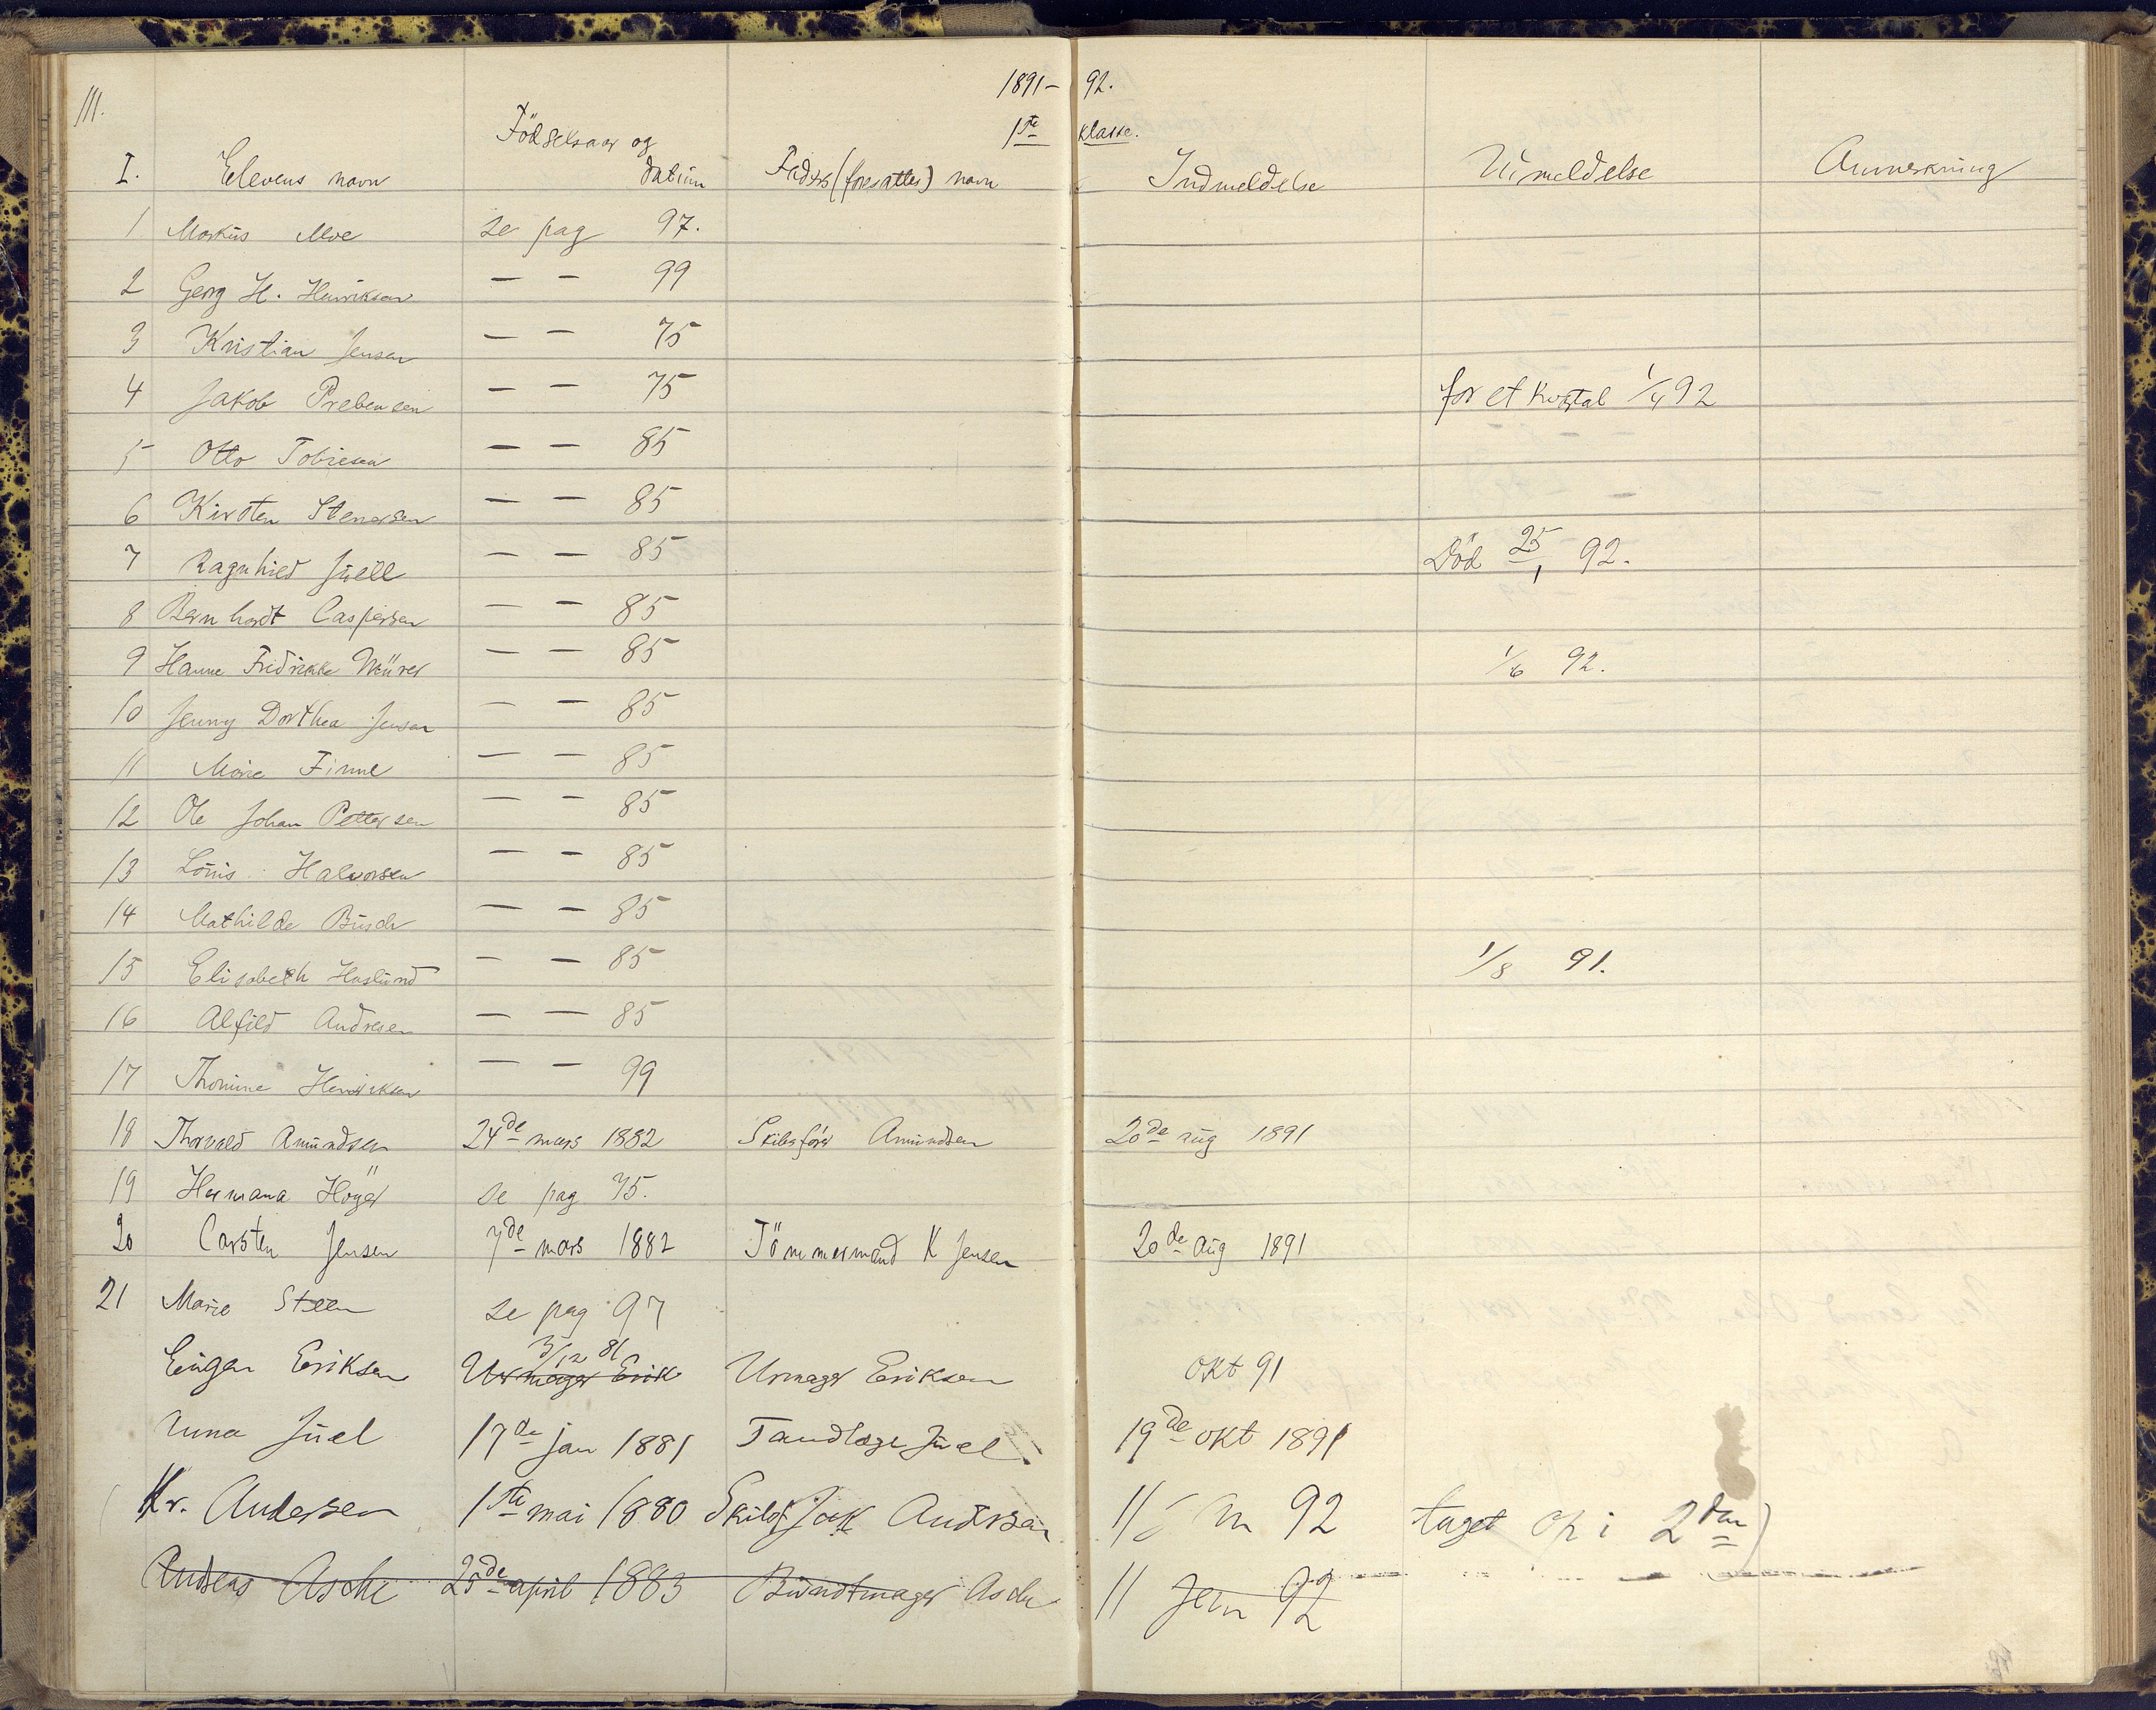 1891- 92.
111.
1ste klasse.
I. Elevens navn Födselsaar og datum Faders (foresattes) navn Indmeldelse Utmeldelse Anmerkning
1 Markus Moe se pag 97.
2 Georg H. Henriksen — — 99
3 Kristian Jensen — — 75
4 Jakob Prebensen — — 75 for et kvartal 1/4 92
5 Otto Tobiesen — — 85
6 Kirsten Stenersen — — 85
7 Ragnhild Juell — — 85 Död 25/1 92.
8 Bernhardt Caspersen — — 85
9 Hanne Fredrikke — — 85 1/6 92.
10 Jenny Dorthea Jensen — — 85
11 Marie Finne — — 85
12 Ole Johan Pettersen — — 85
13 Louis Halvorsen — — 85
14 Mathilde Busch — — 85
15 Elisabeth Haslund — — 85 1/8 91.
16 Alfild Andresen — — 85
17 Thomine Henriksen — — 99
18 Thorvald Amundsen 24de mars 1882 Skibsförer Amundsen 20de aug 1891
19 Hermana Höyer se pag 75.
20 Carsten Jensen 7de mars 1882 Tömmermand K Jensen 20de aug 1891
21 Marie Steen se pag 97
3/12 81
Eugen Eriksen Urmager Erik Urmager Eriksen okt 91
Anna Juel 17de jan 1881 Tandlæge Juel 19de okt 1891
Kr. Andersen 1ste mai 1880 Skibsf Andersen 11 92 taget op i 2den)
Andreas Asche 25de april 1883 Buntmager Asche 11 Jan 92